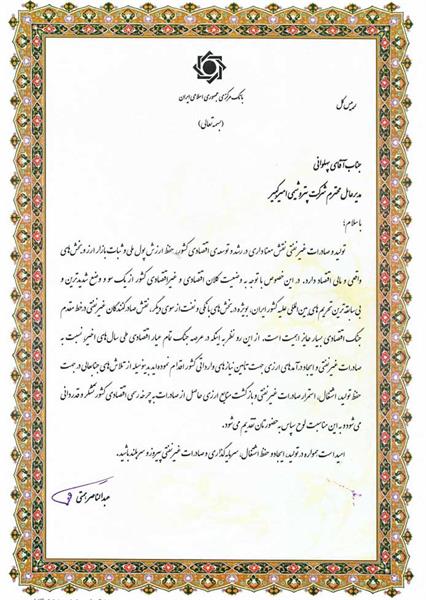 بانک مرکزی جمهوری اسلامی ایران
رییس کل
(بسمه تعالی)
جناب آقای پهلوانی
مدیر عامل محترم شرکت پتروشیمی امیرکبیر
با سلام؛
تولید و صادرات غیرنفتی نقش معناداری در رشد و توسعه‌ی اقتصادی کشور، حفظ ارزش پول ملی و ثبات بازار ارز و بخش‌های
واقعی و مالی اقتصاد دارد. در این خصوص با توجه به وضعیت کلان اقتصادی و غیراقتصادی کشور از یک سو و وضع شدیدترین و
بی سابقه‌ترین تحریم‌های بین‌المللی علیه کشور ایران، بویژه در بخش‌های بانکی و نفت از سوی دیگر، نقش صادرکنندگان غیرنفتی در خط مقدم
جنگ اقتصادی بسیار حائز اهمیت است. از این رو نظر به اینکه در عرصه جنگ تمام عیار اقتصادی طی سال‌های اخیر نسبت به
صادرات غیرنفتی و ایجاد درآمدهای ارزی جهت تامین نیازهای وارداتی کشور اقدام نموده‌اید بدینوسیله از تلاش‌های جنابعالی در جهت
حفظ تولید، اشتغال، استمرار صادرات غیرنفتی و بازگشت منابع ارزی حاصل از صادرات به چرخه رسمی اقتصادی کشور تشکر و قدردانی
می‌شود و به این مناسبت لوح سپاس به حضورتان تقدیم می‌شود.
امید است همواره در تولید، ایجاد و حفظ اشتغال، سرمایه‌گذاری و صادرات غیرنفتی پیروز و سربلند باشید.
عبدالناصر همتی